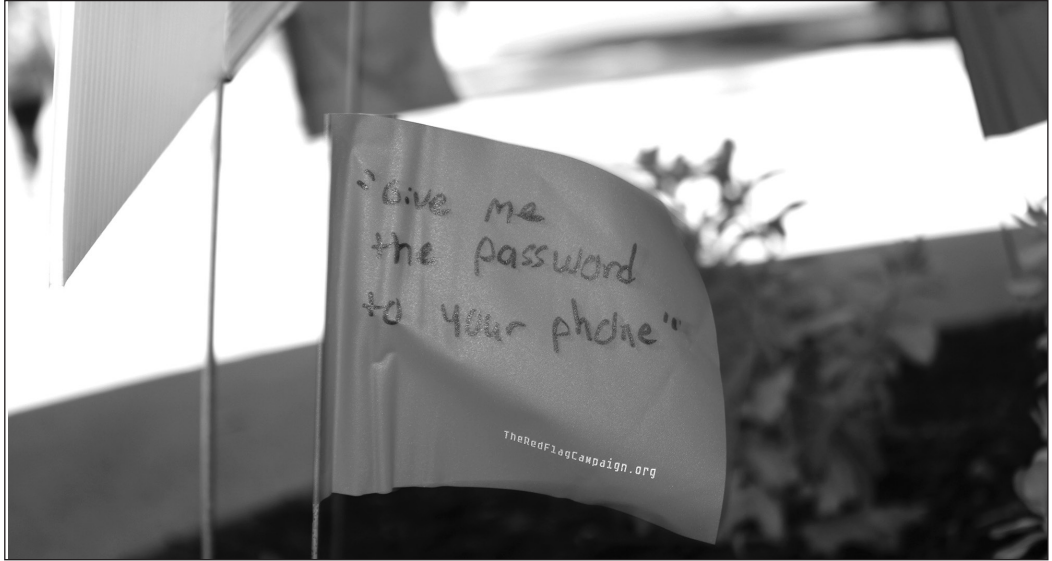 "Give me
the password
to your phone"
TheRedFlagCampaign.org